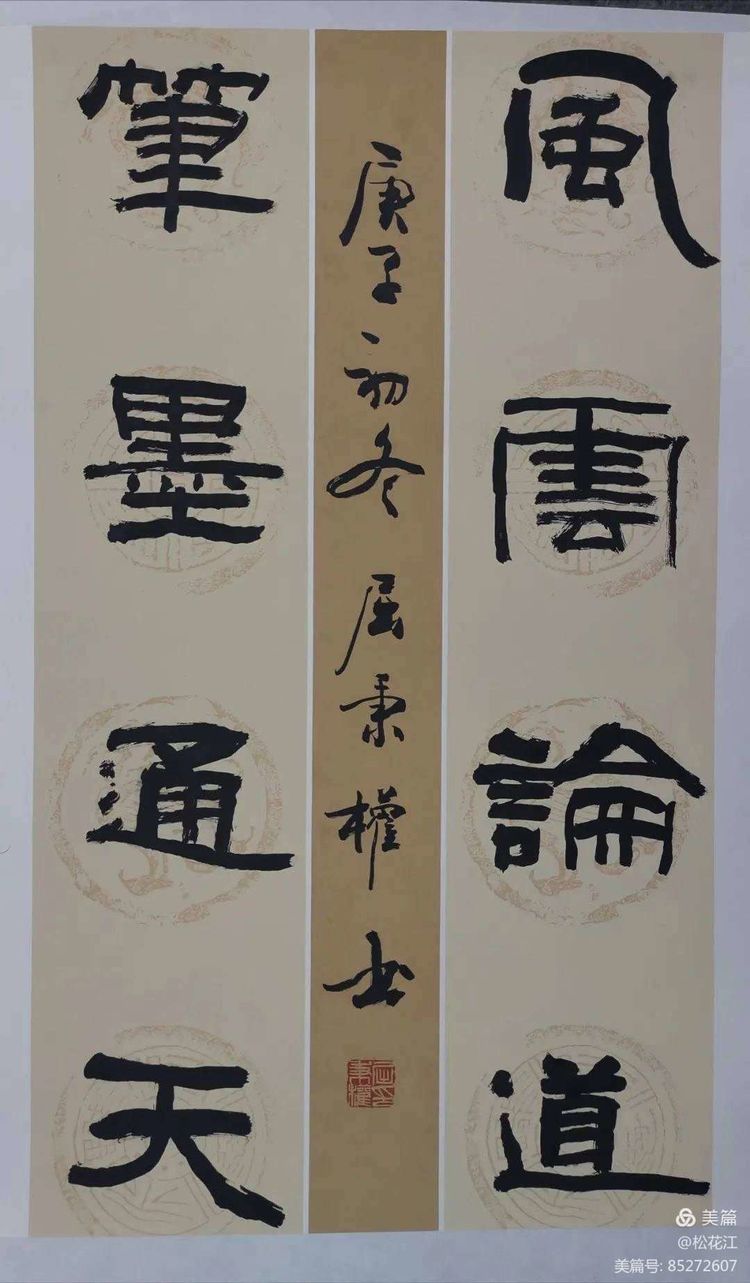 風雲論道
筆墨通天
庚子初冬屈秉權书
美篇
@松花江
美篇号: 85272607